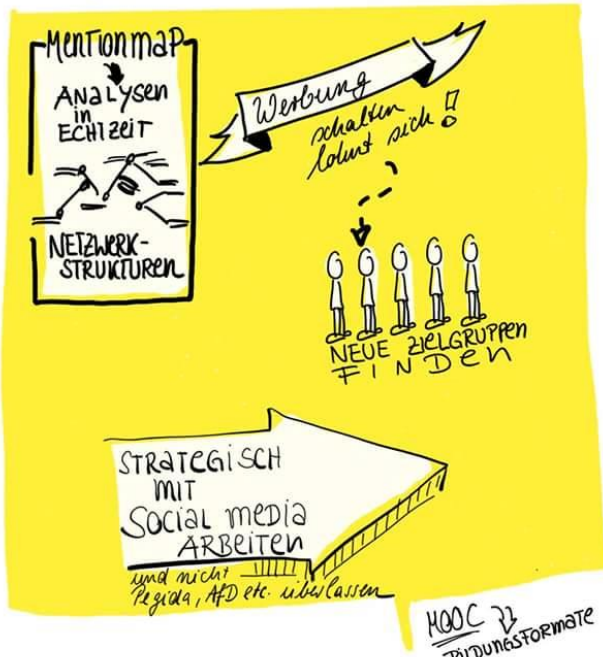 Mentionmap
Analysen
in
Echtzeit
Netzwerk-
strukturen
Werbung
schalten
lohnt sich!
Neue Zielgruppen
finden
Strategisch
mit
Social Media
arbeiten
und nicht
Pegida, AfD etc. überlassen
MOOC
Bildungsformate